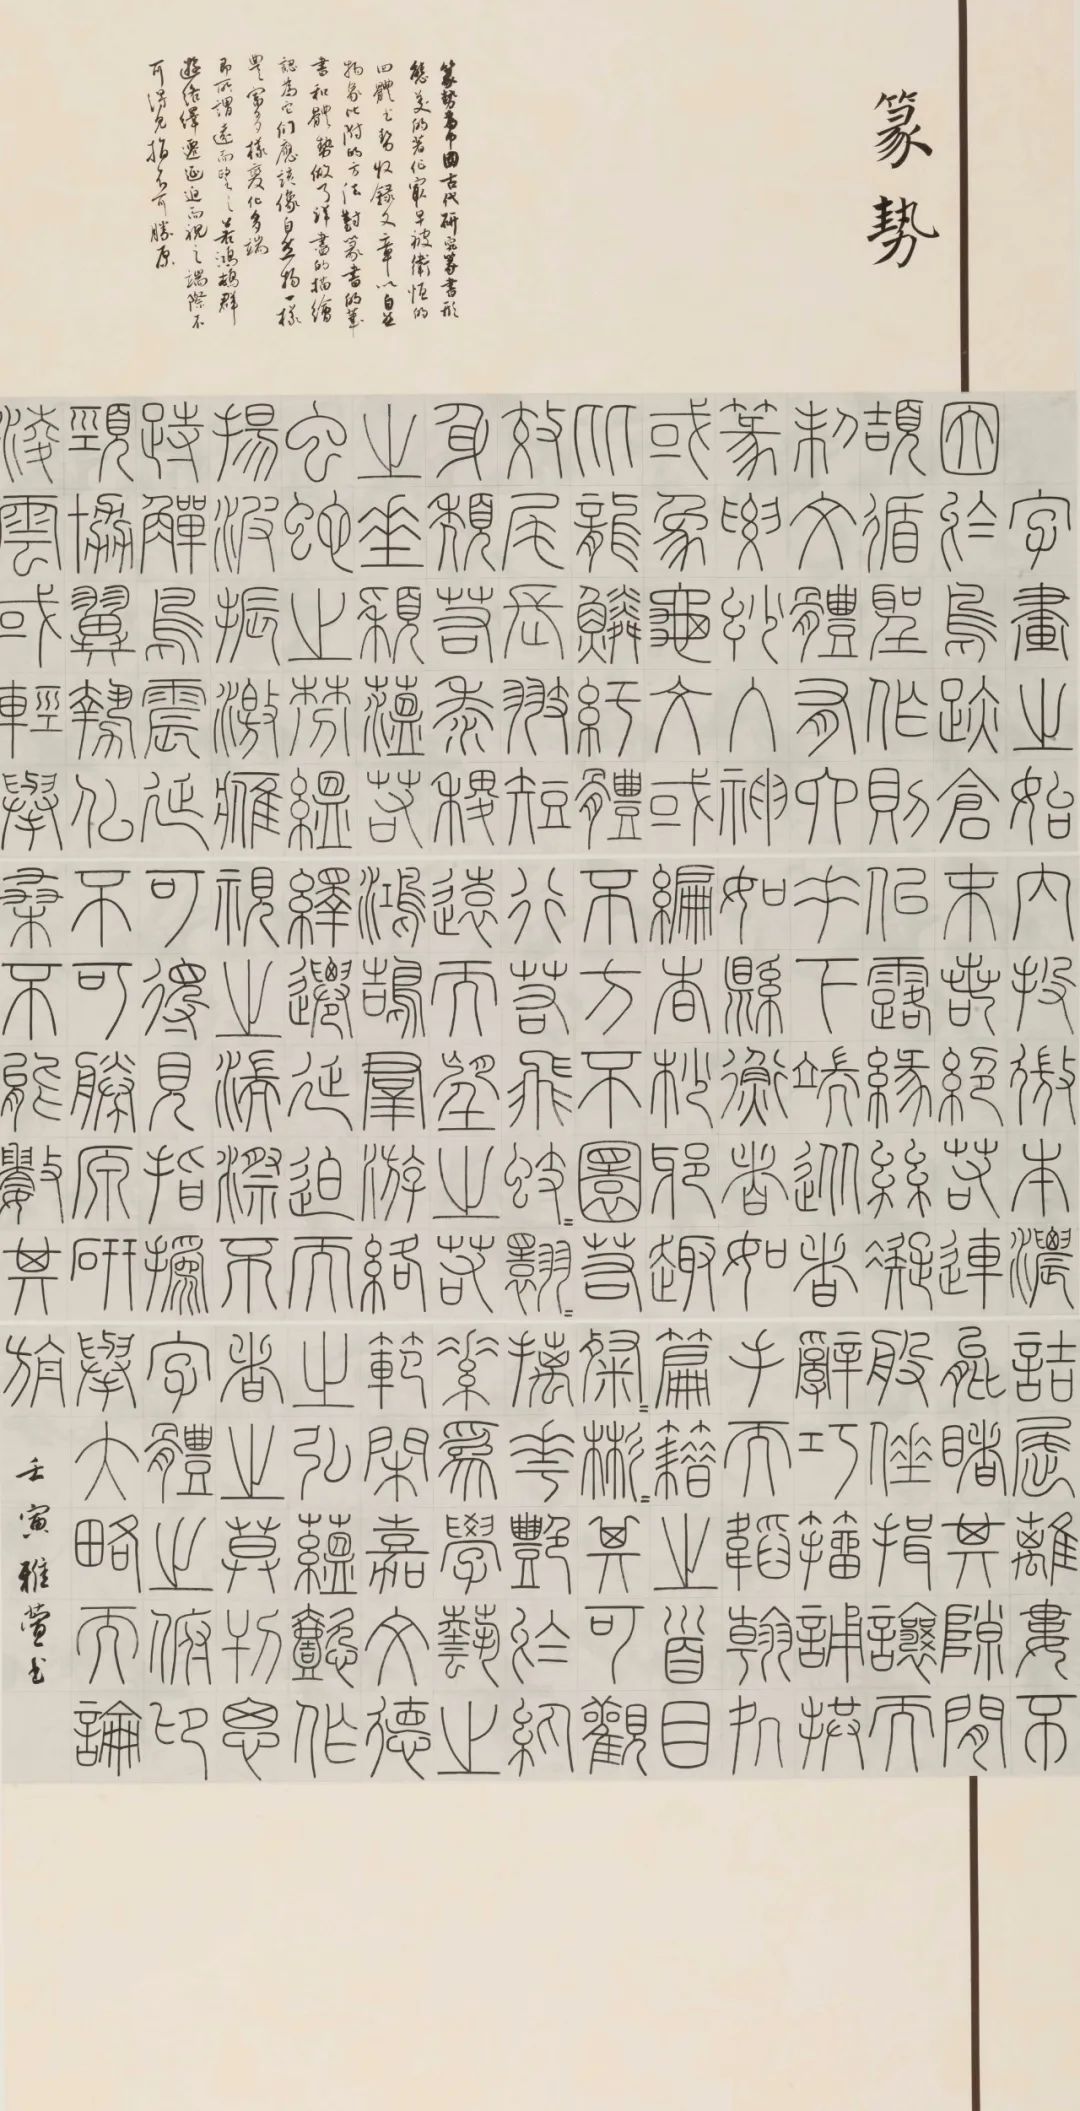 篆勢
篆勢為中國古代研究篆書形
態美的著作最早被衛恒的
四體书勢收録文章以自然
物象比附的方法對篆書的筆
書和體勢做了詳盡的描繪
認為它们應該像自然物一樣
豐富多樣變化多端
即所謂遠而望之若鴻鵠群
遊络繹遷延迫而視之端際不
可得见指不可勝原
字畫之始
因於鳥跡倉
頡循聖作則
制文體有六
篆要妙入神
或象龜文或
比龍鱗紆體
效尾長翅短
身頹若黍稷
之垂穎蘊若
虫蛇之棼縕
揚波振激鷹
跱觶鳥震延
頸協翼勢似
淩雲或輕舉
內投微本濃
末若絕若連
似露緣絲凝
垂下端從者
如縣衡者如
編杳杪邪趣
不方不圓若
行若飛蚑=翾=
遠而望之若
鴻鵠群游絡
繹遷延迫而
視之湍漈不
可得見指撝
不可勝原研
桑不能數其
詰屈離婁不
能睹其隙間
般倕揖讓而
辭巧籀誦拱
手而韜翰処
篇籍之首目
粲=彬=其可觀
摛華豔於紈
素為學藝之
範閑嘉文德
之弘蘊懿作
者之莫刊思
字體之俯仰
舉大略而論
旃
壬寅雅萱书